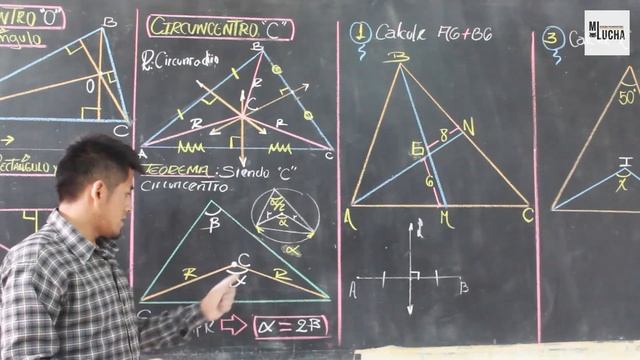 NTRO "O"
B
O
C
CIRCUNCENTRO "C"
R: Circunradio
B
R
C
R
R
A
C
TEOREMA: Siendo "C"
Circuncentro
β
C
R
R
α
α
α
α = 2β
① Calcule FG+BG
B
8
N
G
6
A
M
C
A
B
③
50°
I
x
MI LUCHA